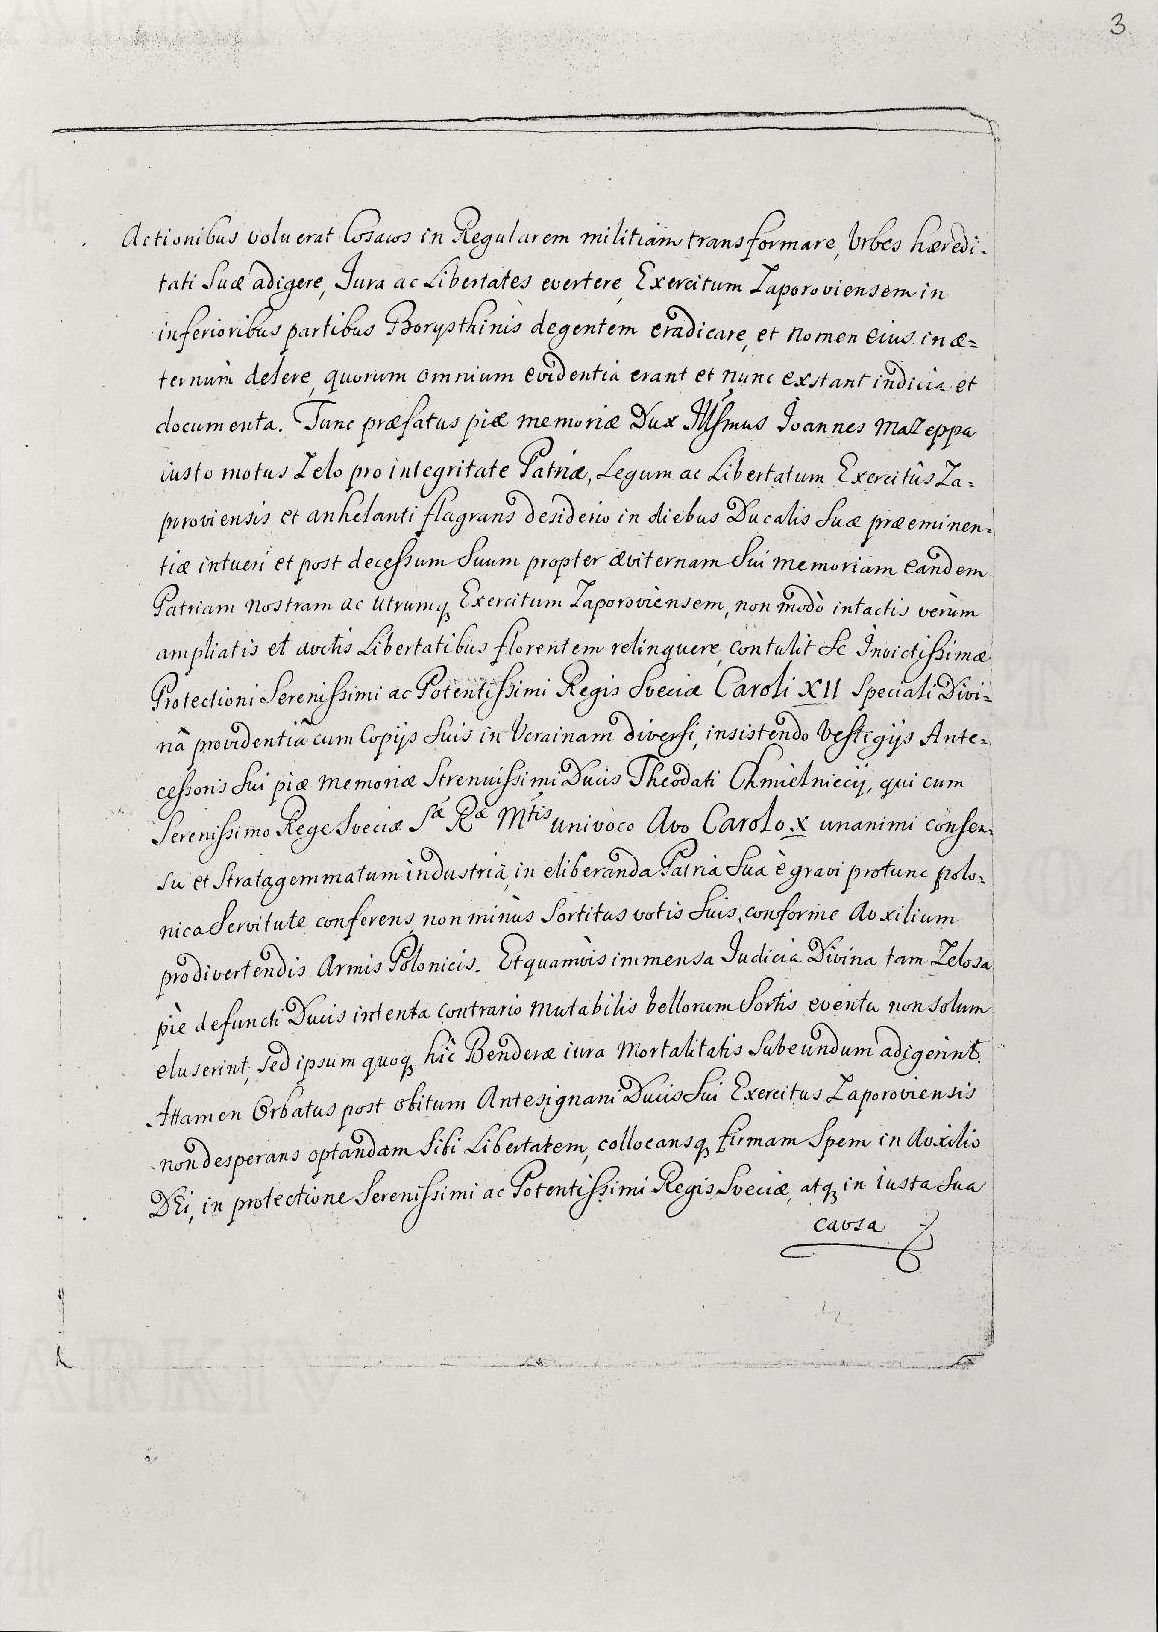 3
Actionibus voluerat Cosacos in Regularem militiam transformare, Urbes hæredi-
tati Suæ adigere, Jura ac Libertates evertere, Exercitum Zaporoviensem in
inferioribus partibus Borysthinis degentem eradicare, et nomen eius in æ=
ternum delere, quorum omnium evidentia erant et nunc exstant indicia et
documenta. Tunc præfatus piæ memoriæ Dux Illsmus Joannes Mazeppa
iusto motus Zelo pro integritate Patriæ, Legum ac Libertatum Exercitûs Za=
poroviensis et anhelanti flagrans desiderio in diebus Ducalis Suæ præeminen=
tiæ intueri et post decessum Suum propter æviternam Sui memoriam eandem
Patriam nostram ac utrumq Exercitum Zaporoviensem, non modò intactis verùm
ampliatis et auctis Libertatibus florentem relinquere, contulit Se Invictissimæ
Protectioni Serenissimi ac Potentissimi Regis Sveciæ Caroli XII Speciali Divi=
nâ providentiâ cum Copijs Suis in Ucrainam diversi, insistendo Vestigijs Ante=
cessoris Sui piæ memoriæ Strenuissimi Ducis Theodati Chmielniecij, qui cum
Serenissimo Rege Sveciæ Sæ Ræ Mtis univoco Avo Carolo X unanimi consen=
su et Stratagemmatum industriâ, in eliberanda Patria Sua è gravi protunc polo=
nica Servitute conferens, non minùs Sortitus votis Suis, conforme Auxilium
pro divertendis Armis Polonicis. Et quamvis immensa Judicia Divina tam Zelosa
piè defuncti Ducis intenta contrario mutabilis bellorum Sortis eventu non solum
eluserint, Sed ipsum quoq hîc Benderæ iura Mortalitatis Subeundum adigerint.
Attamen Orbatus post obitum Antesignani Ducis Sui Exercitus Zaporoviensis
non desperans optandam Sibi Libertatem, collocansq firmam Spem in Auxilio
DEi, in protectione Serenissimi ac Potentissimi Regis Sveciæ, atq in iusta Sua
causa